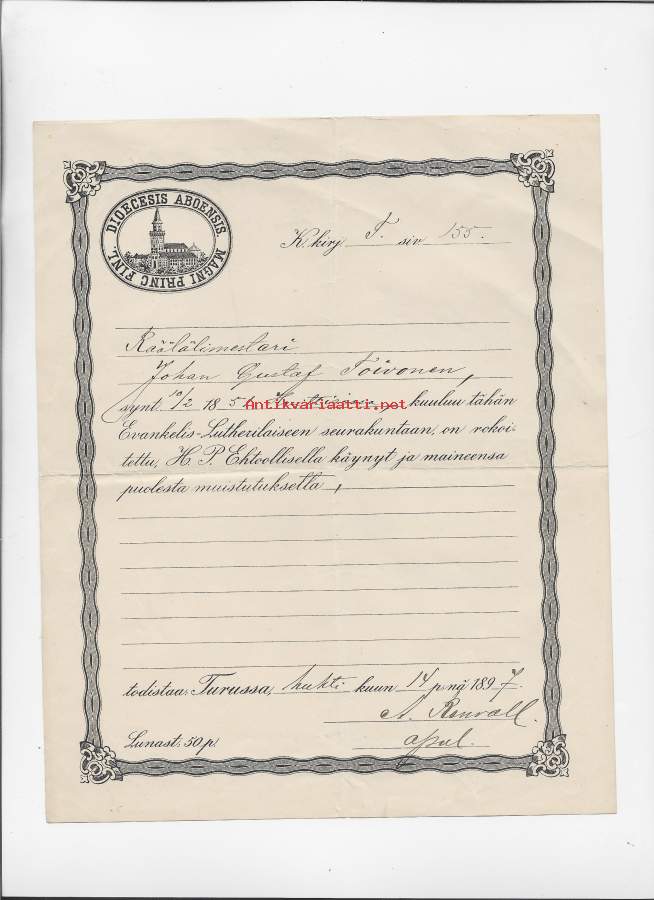 DIOECESIS ABOENSIS. MAGNI PRINC FINL.
K. kirj. T. siv 155.
Räätälimestari
Johan Gustaf Toivonen,
synt. 10/2 185 kuuluu tähän
Antikvariaatti.net
Evankelis-Lutherilaiseen seurakuntaan, on rokoi-
tettu, H. P. Ehtoollisella käynyt ja maineensa
puolesta muistutuksetta,
todistaa: Turussa, huhti kuun 14 p:nä 1897.
A. Renvall.
apul.
Lunast: 50 p.